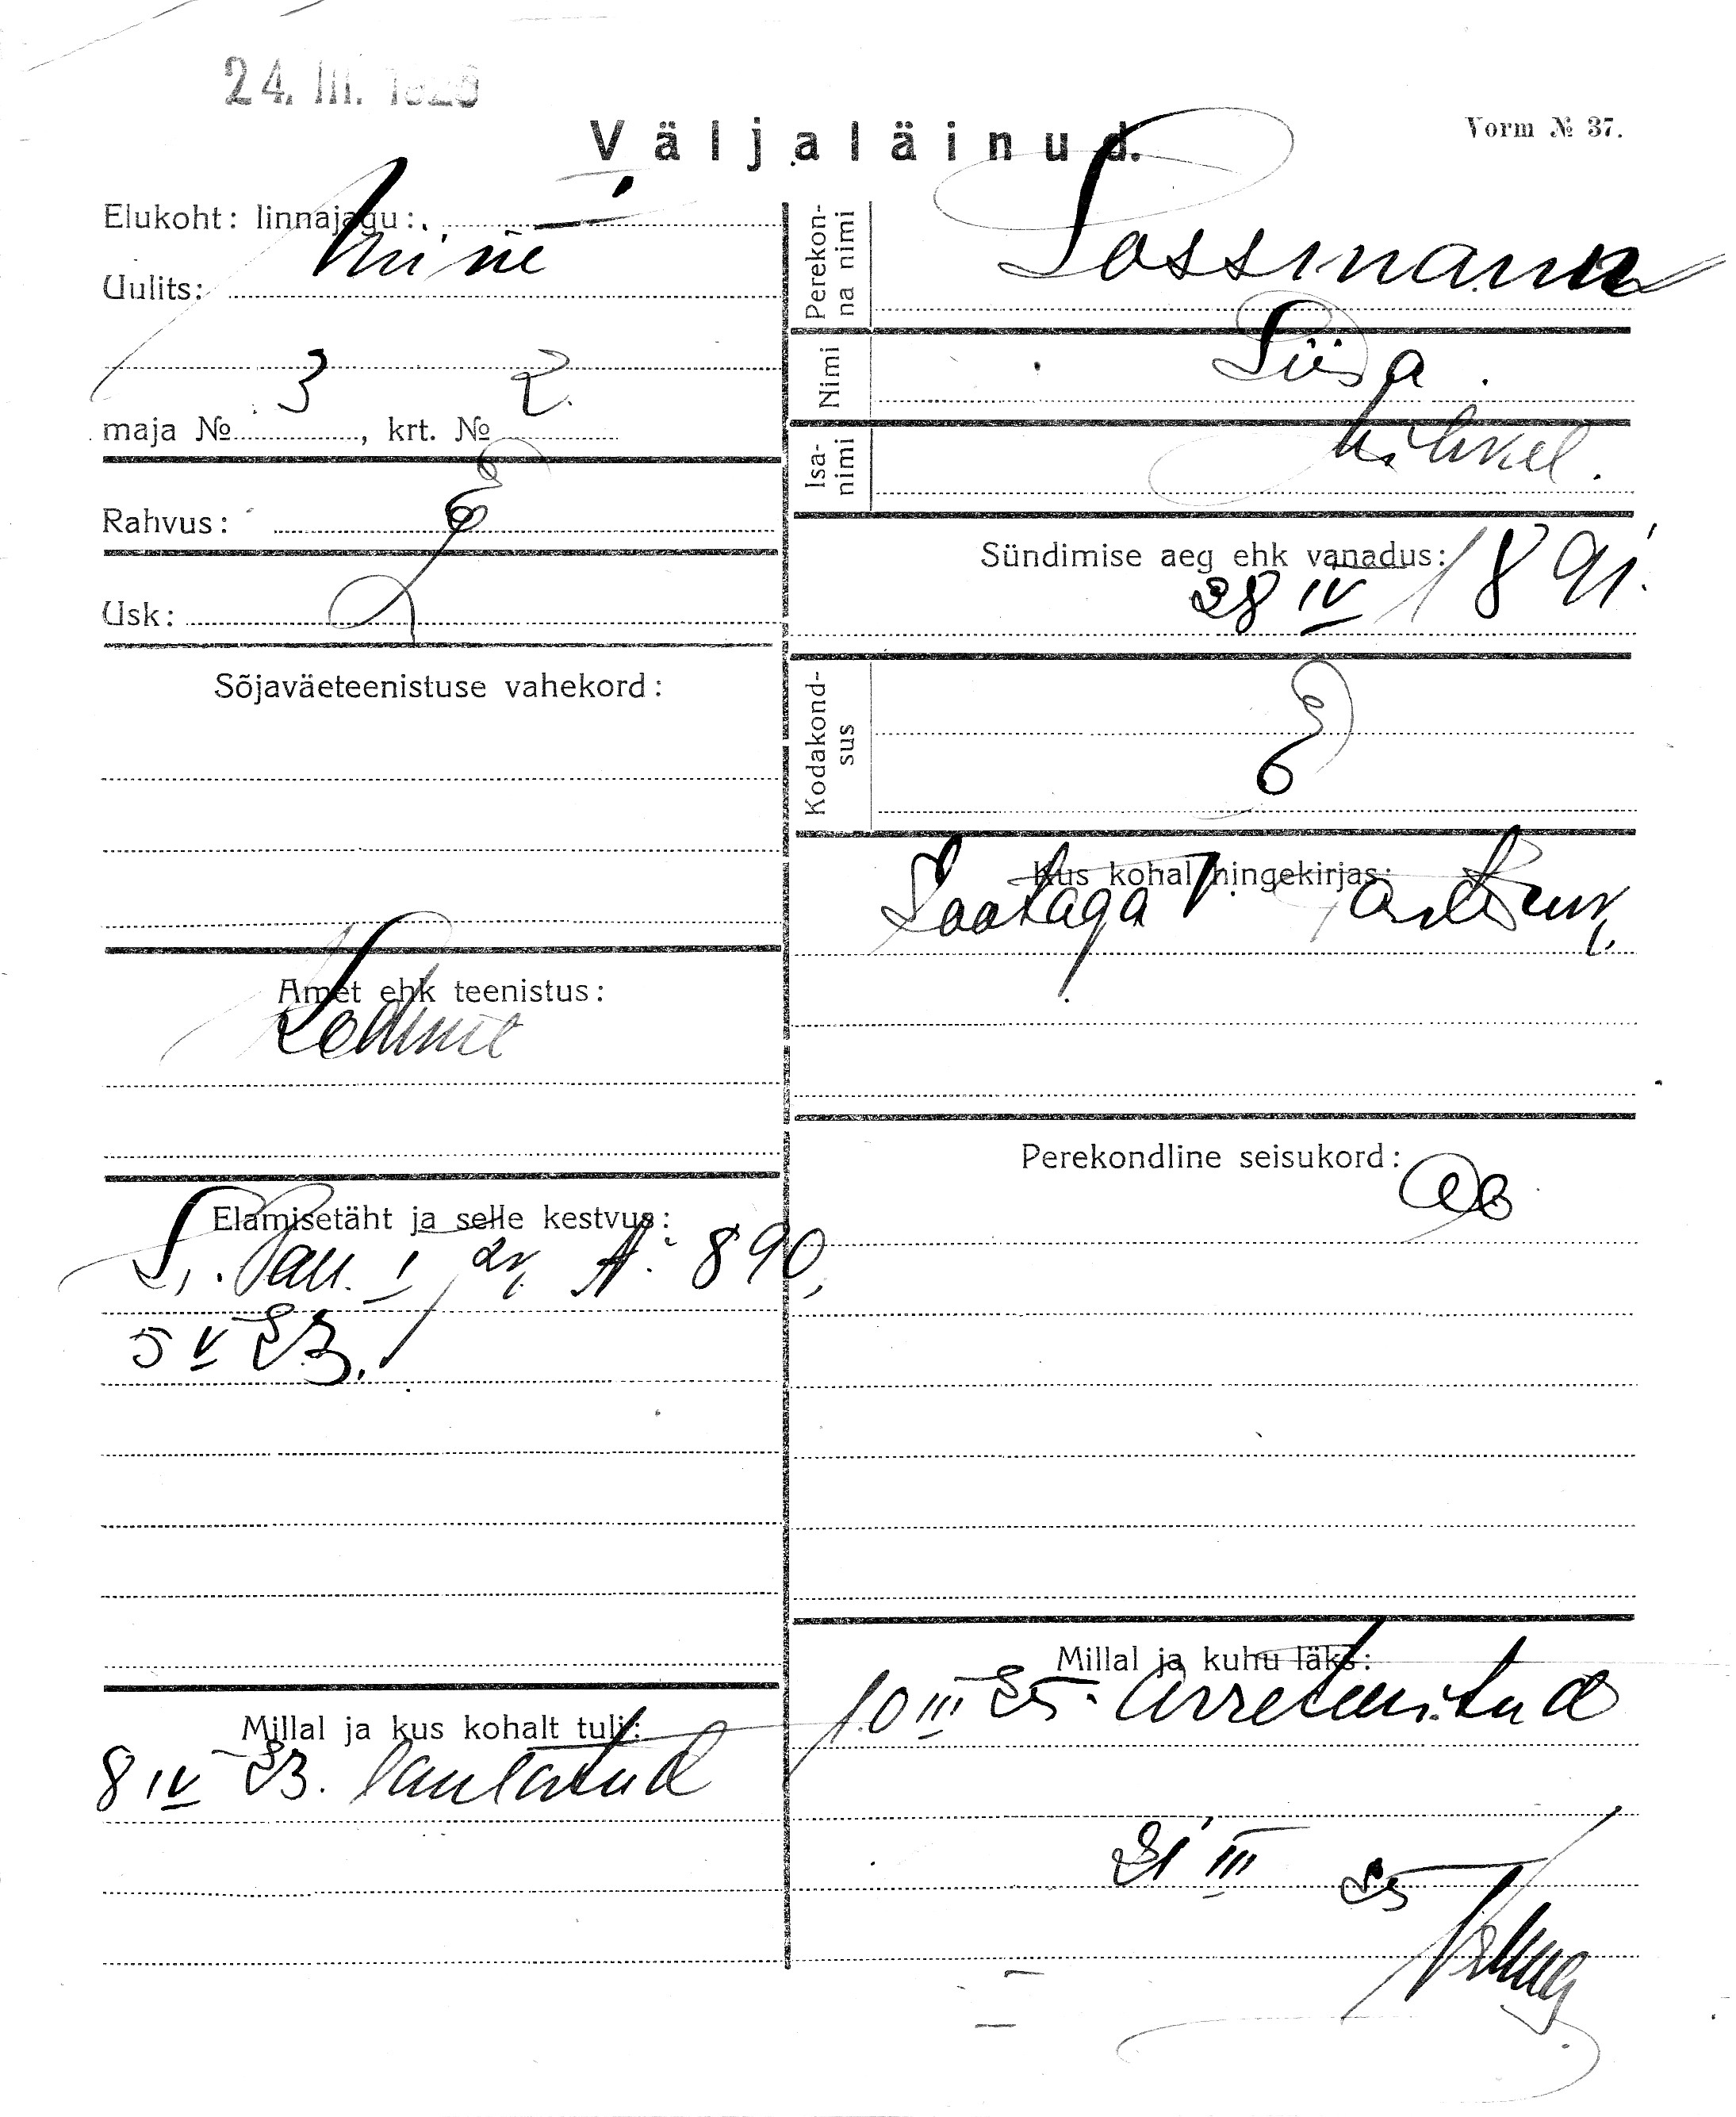 24. III. 1925
Väljaläinud.
Vorm № 37.
Elukoht: linnajagu: I
Uulits: Mine
maja № 3, krt. № 2.
Rahvus: E
Usk: L
Sõjaväeteenistuse vahekord:
Amet ehk teenistus:
Elamisetäht ja selle kestvus:
I A: 890,
5 V 23.
Millal ja kus kohalt tuli:
8 IV 23. laulatud
Perekonna nimi
Lossmann
Nimi
Liisa.
Isanimi
Mihkel.
Sündimise aeg ehk vanadus:
28 IV 1891.
Kodakondsus
E
Kus kohal hingekirjas:
Sootaga v. Tartu
Perekondline seisukord:
Millal ja kuhu läks:
10 III 25. Arreteeritud
21 III 25